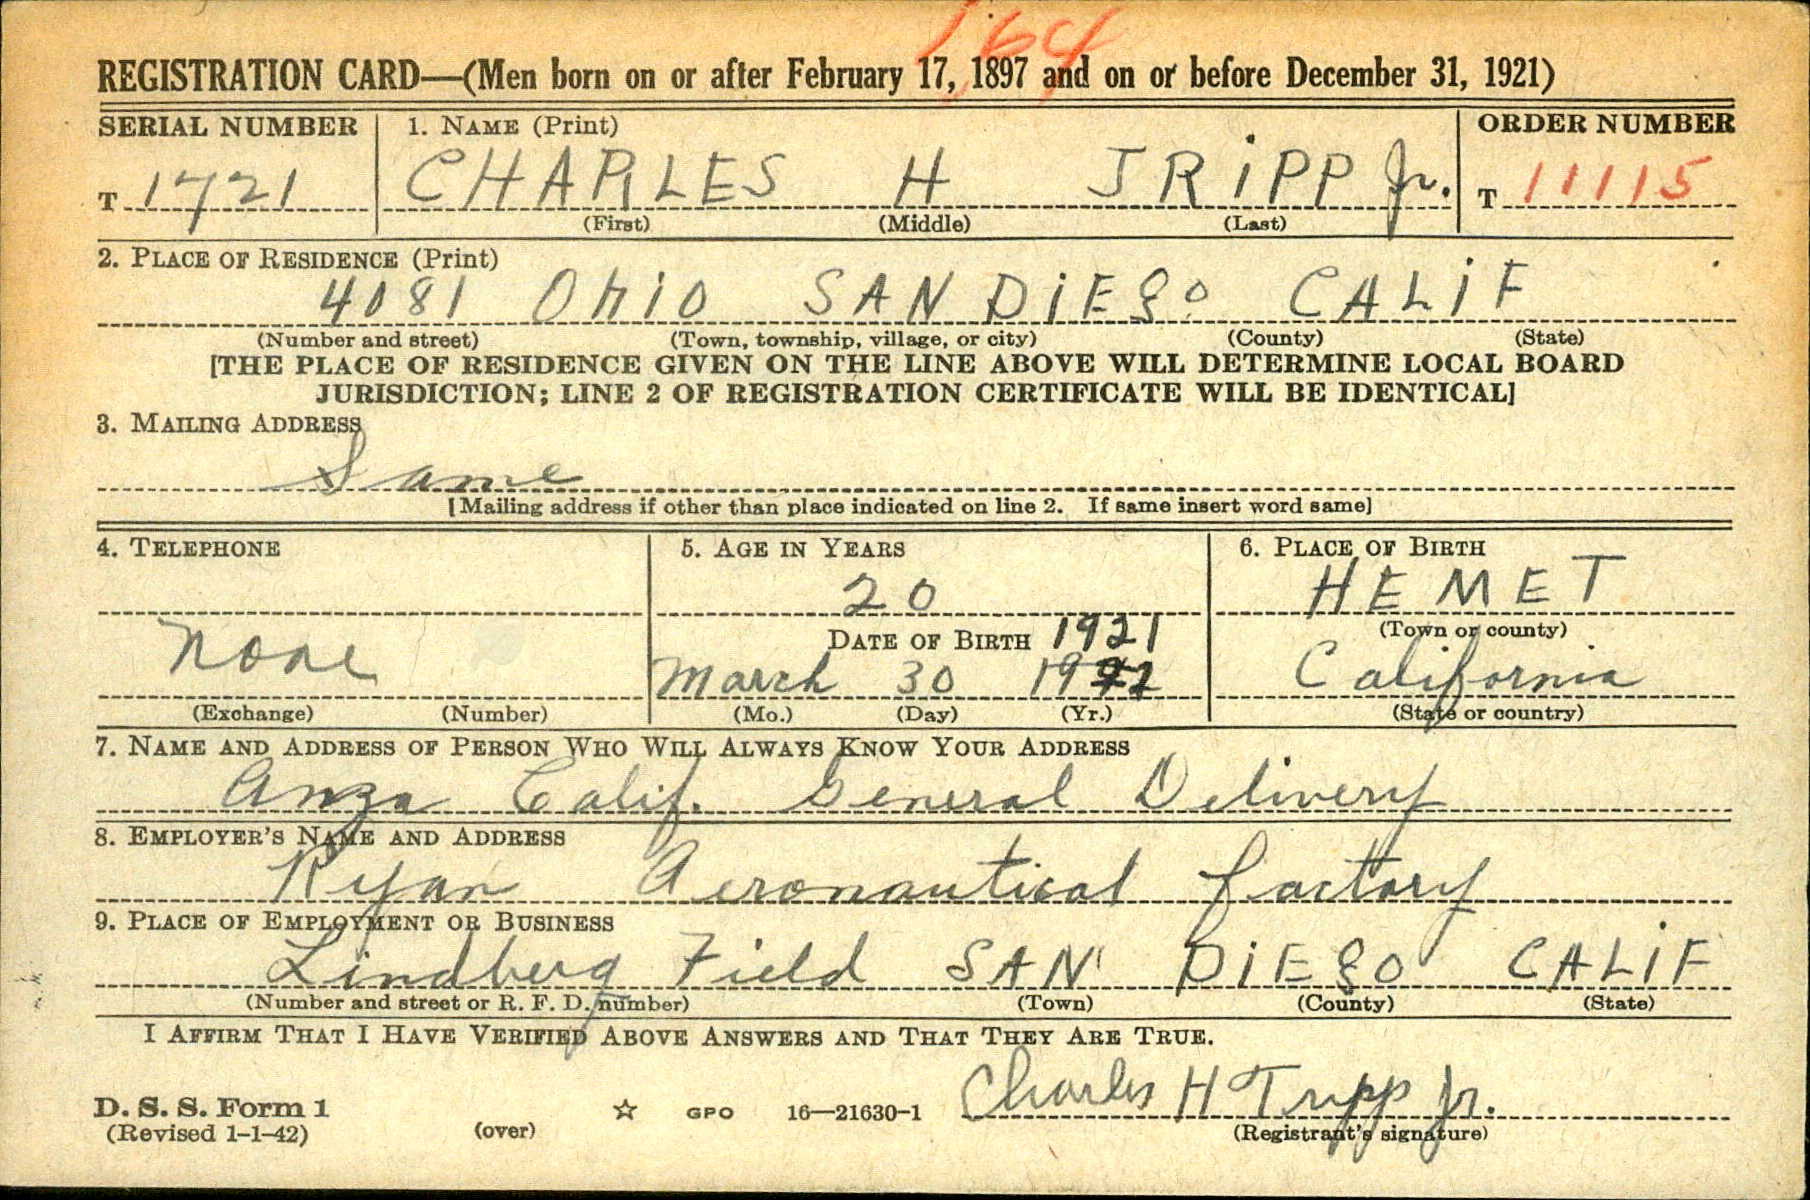 164
REGISTRATION CARD—(Men born on or after February 17, 1897 and on or before December 31, 1921)
SERIAL NUMBER 1. NAME (Print) ORDER NUMBER
T 1721 CHARLES H TRIPP Jr. T 11115
(First) (Middle) (Last)
2. PLACE OF RESIDENCE (Print)
4081 OHIO SAN DIEGO CALIF
(Number and street) (Town, township, village, or city) (County) (State)
[THE PLACE OF RESIDENCE GIVEN ON THE LINE ABOVE WILL DETERMINE LOCAL BOARD
JURISDICTION; LINE 2 OF REGISTRATION CERTIFICATE WILL BE IDENTICAL]
3. MAILING ADDRESS
Same
[Mailing address if other than place indicated on line 2. If same insert word same]
4. TELEPHONE 5. AGE IN YEARS 6. PLACE OF BIRTH
20 HEMET
DATE OF BIRTH 1921 (Town or county)
None March 30 19 California
(Exchange) (Number) (Mo.) (Day) (Yr.) (State or country)
7. NAME AND ADDRESS OF PERSON WHO WILL ALWAYS KNOW YOUR ADDRESS
Anza Calif. General Delivery
8. EMPLOYER'S NAME AND ADDRESS
Ryan Aeronautical factory
9. PLACE OF EMPLOYMENT OR BUSINESS
Lindberg Field SAN DIEGO CALIF
(Number and street or R. F. D. number) (Town) (County) (State)
I AFFIRM THAT I HAVE VERIFIED ABOVE ANSWERS AND THAT THEY ARE TRUE.
Charles H Tripp Jr.
D. S. S. Form 1 GPO 16—21630-1
(Revised 1-1-42) (over) (Registrant's signature)